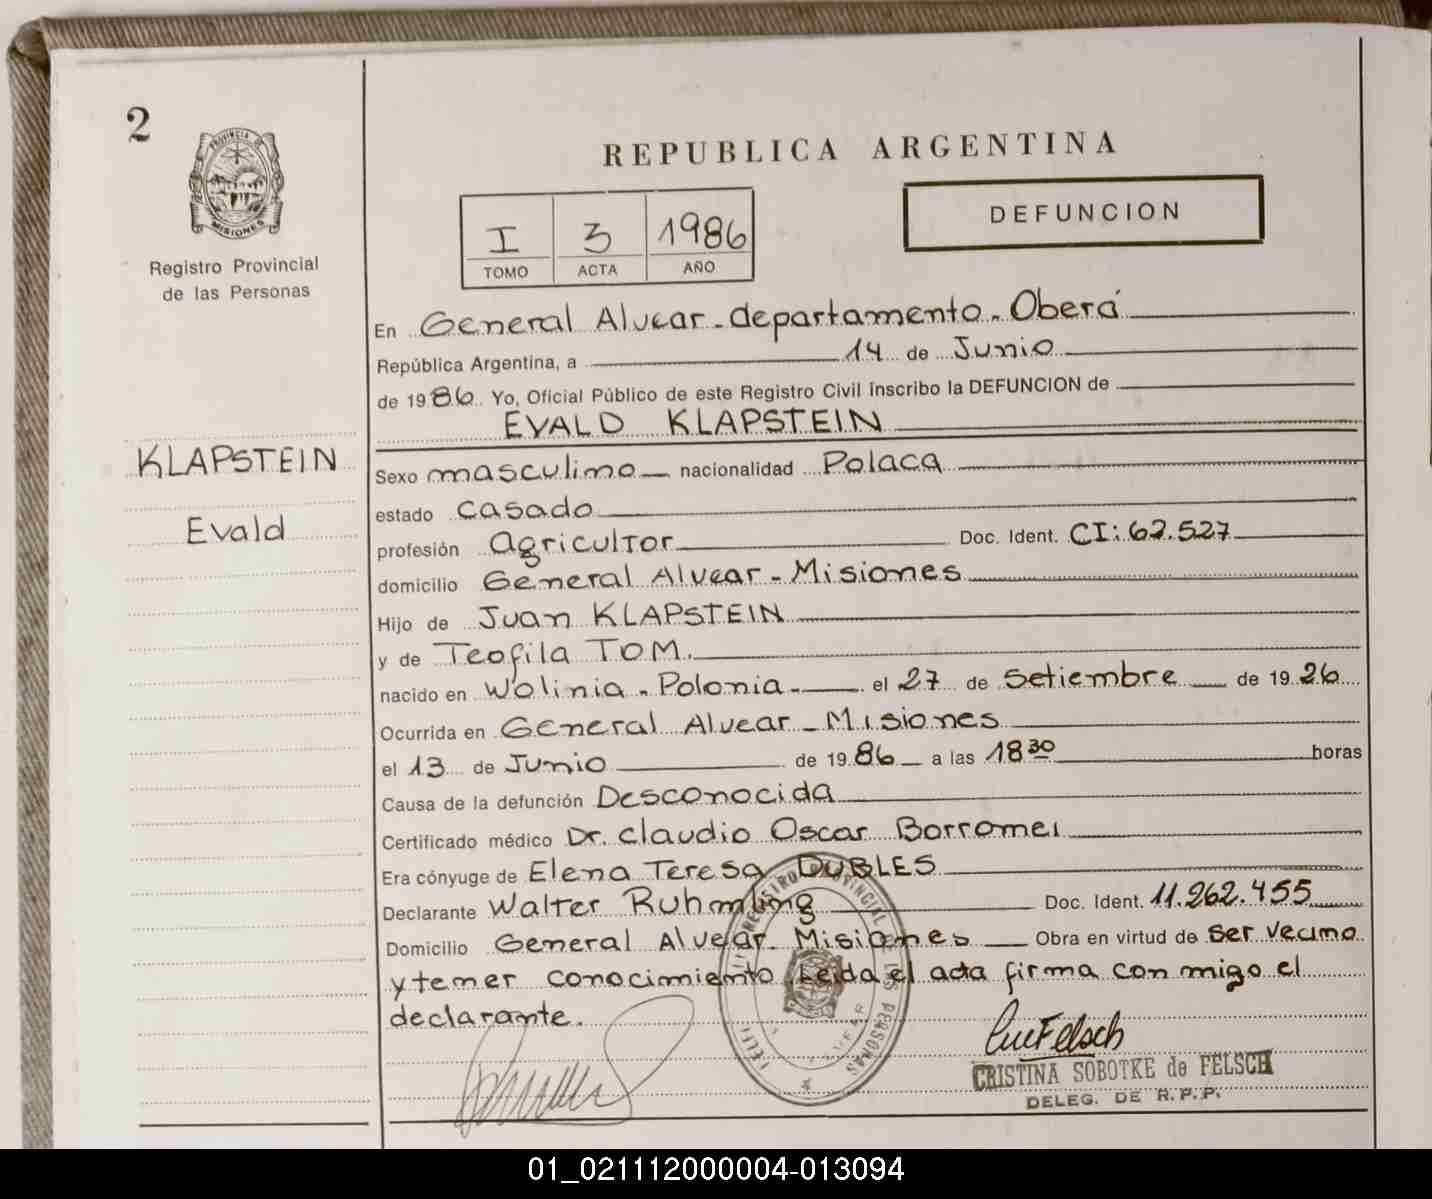 2
PROVINCIA DE
MISIONES
Registro Provincial
de las Personas
REPUBLICA ARGENTINA
I 3 1986
TOMO ACTA AÑO
DEFUNCION
En General Alvear - departamento - Oberá
República Argentina, a 14 de Junio
de 1986 Yo, Oficial Público de este Registro Civil inscribo la DEFUNCION de
EVALD KLAPSTEIN
KLAPSTEIN
Evald
Sexo masculino nacionalidad Polaca
estado casado
profesión agricultor Doc. Ident. CI: 62.527
domicilio General Alvear - Misiones
Hijo de Juan KLAPSTEIN
y de Teofila TOM.
nacido en Wolinia - Polonia - el 27 de Setiembre de 1926
Ocurrida en General Alvear - Misiones
el 13 de Junio de 1986 a las 18 30 horas
Causa de la defunción Desconocida
Certificado médico Dr. Claudio Oscar Borromei
Era cónyuge de Elena Teresa DUBLES
Declarante Walter Ruhmling Doc. Ident. 11.262.455
Domicilio General Alvear - Misiones Obra en virtud de ser vecino
y tener conocimiento Leida el acta firma con migo el
declarante.
REGISTRO PROVINCIAL DE LAS PERSONAS
CRISTINA SOBOTKE de FELSCH
DELEG. DE R.P.P.
01_021112000004-013094